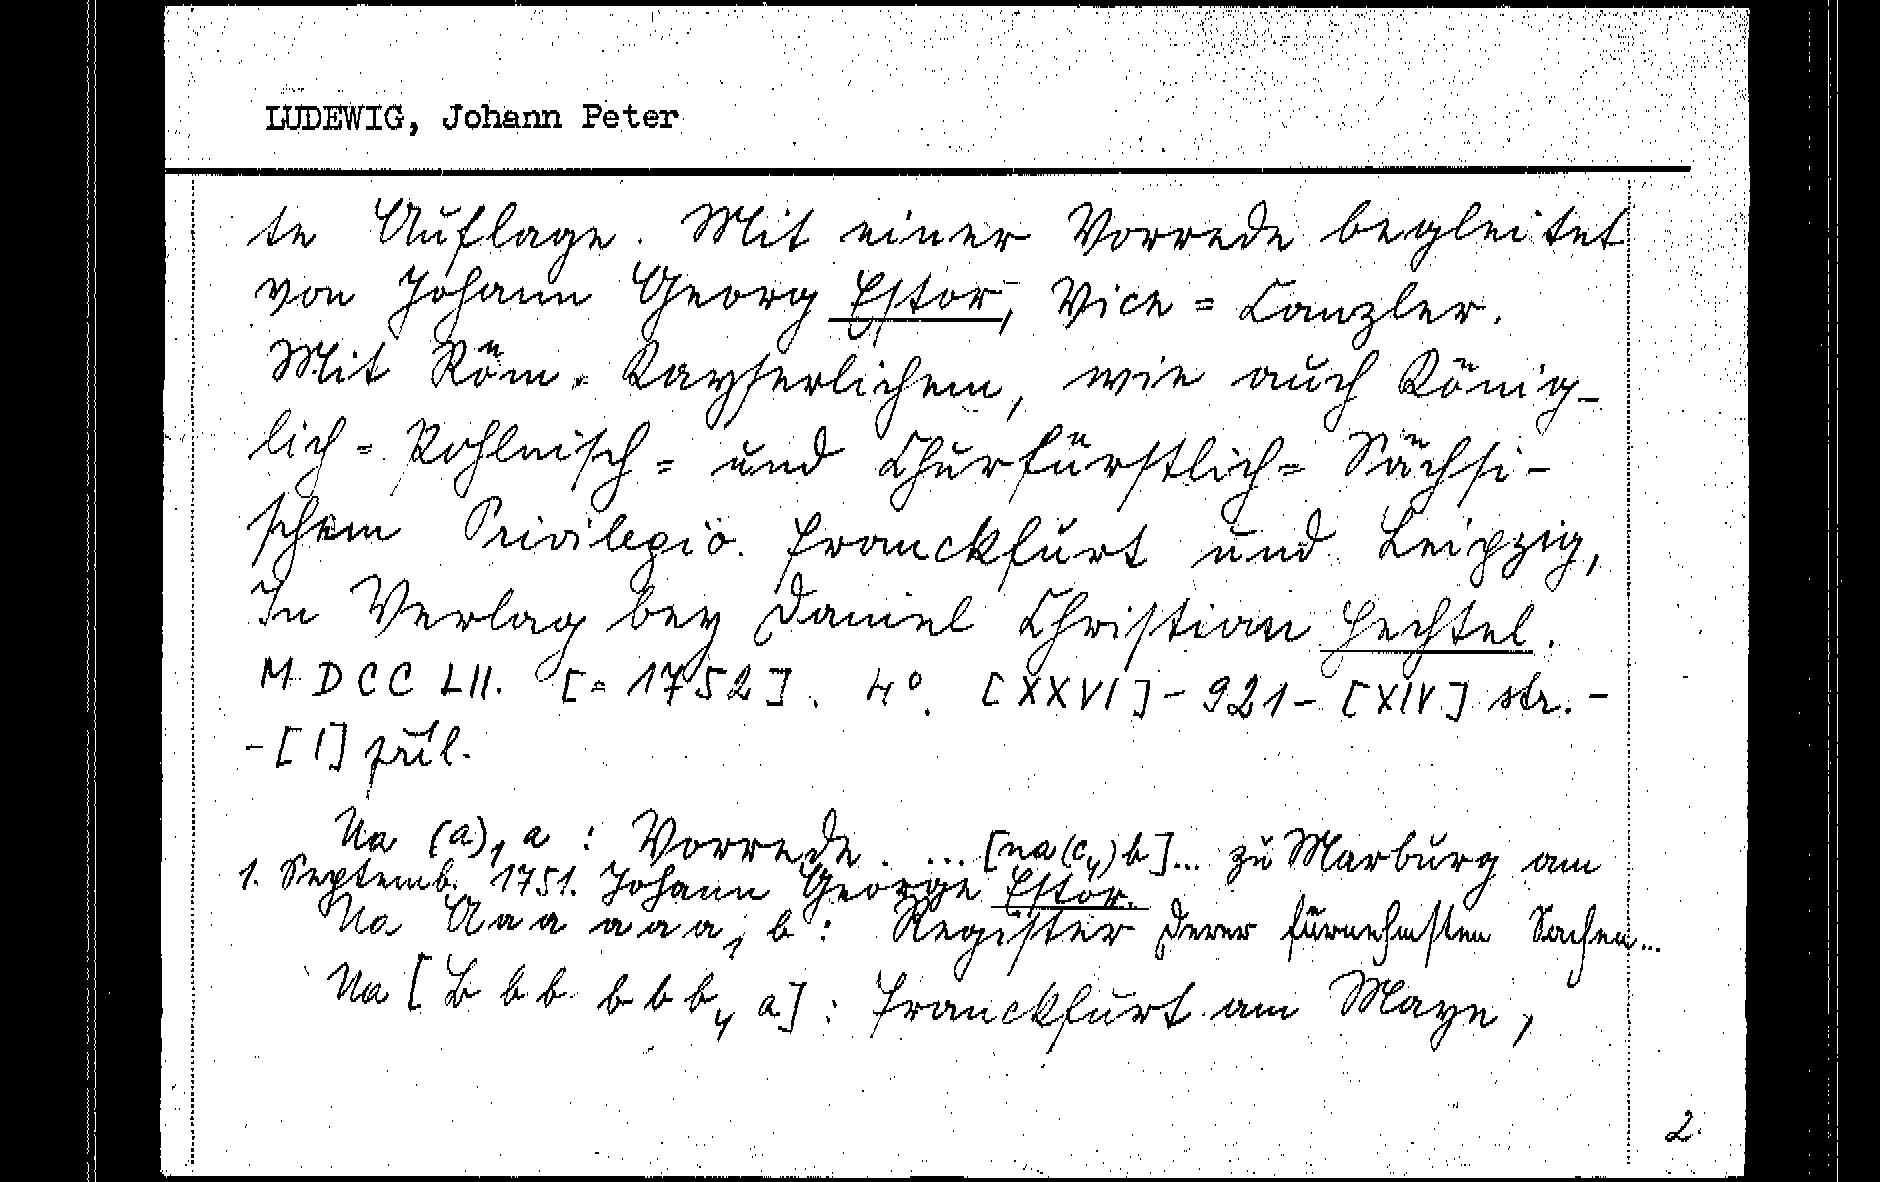 LUDEWIG, Johann Peter
te Auflage. Mit einer Vorrede begleitet
von Johann Georg Estor, Vice = Canzler.
Mit Röm. Kayserlichem, wie auch König-
lich = Pohlnisch = und Churfürstlich = Sächsi-
schem Privilegio. Franckfurt und Leipzig,
In Verlag bey Daniel Christian Hechtel.
MDCCLII. [= 1752]. 4°. [XXVI] - 921 - [XIV] str. -
- [1] příl.
Na (a), a : Vorrede. ... [na (c4) b] ... zu Marburg am
1. Septemb. 1751. Johann George Estor.
Na Aaa aaa, b : Register derer fürnehmsten Sachen ...
Na [Bbb bbb4 a] : Franckfurt am Mayn,
2.